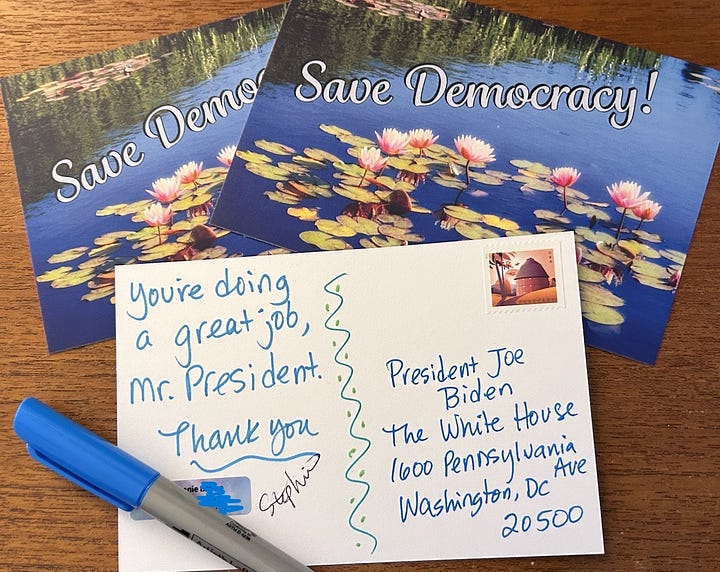 Save Democracy!
Save Demo
You're doing
a great job,
Mr. President.
Thank you
President Joe
Biden
The White House
1600 Pennsylvania
Ave
Washington, DC
20500